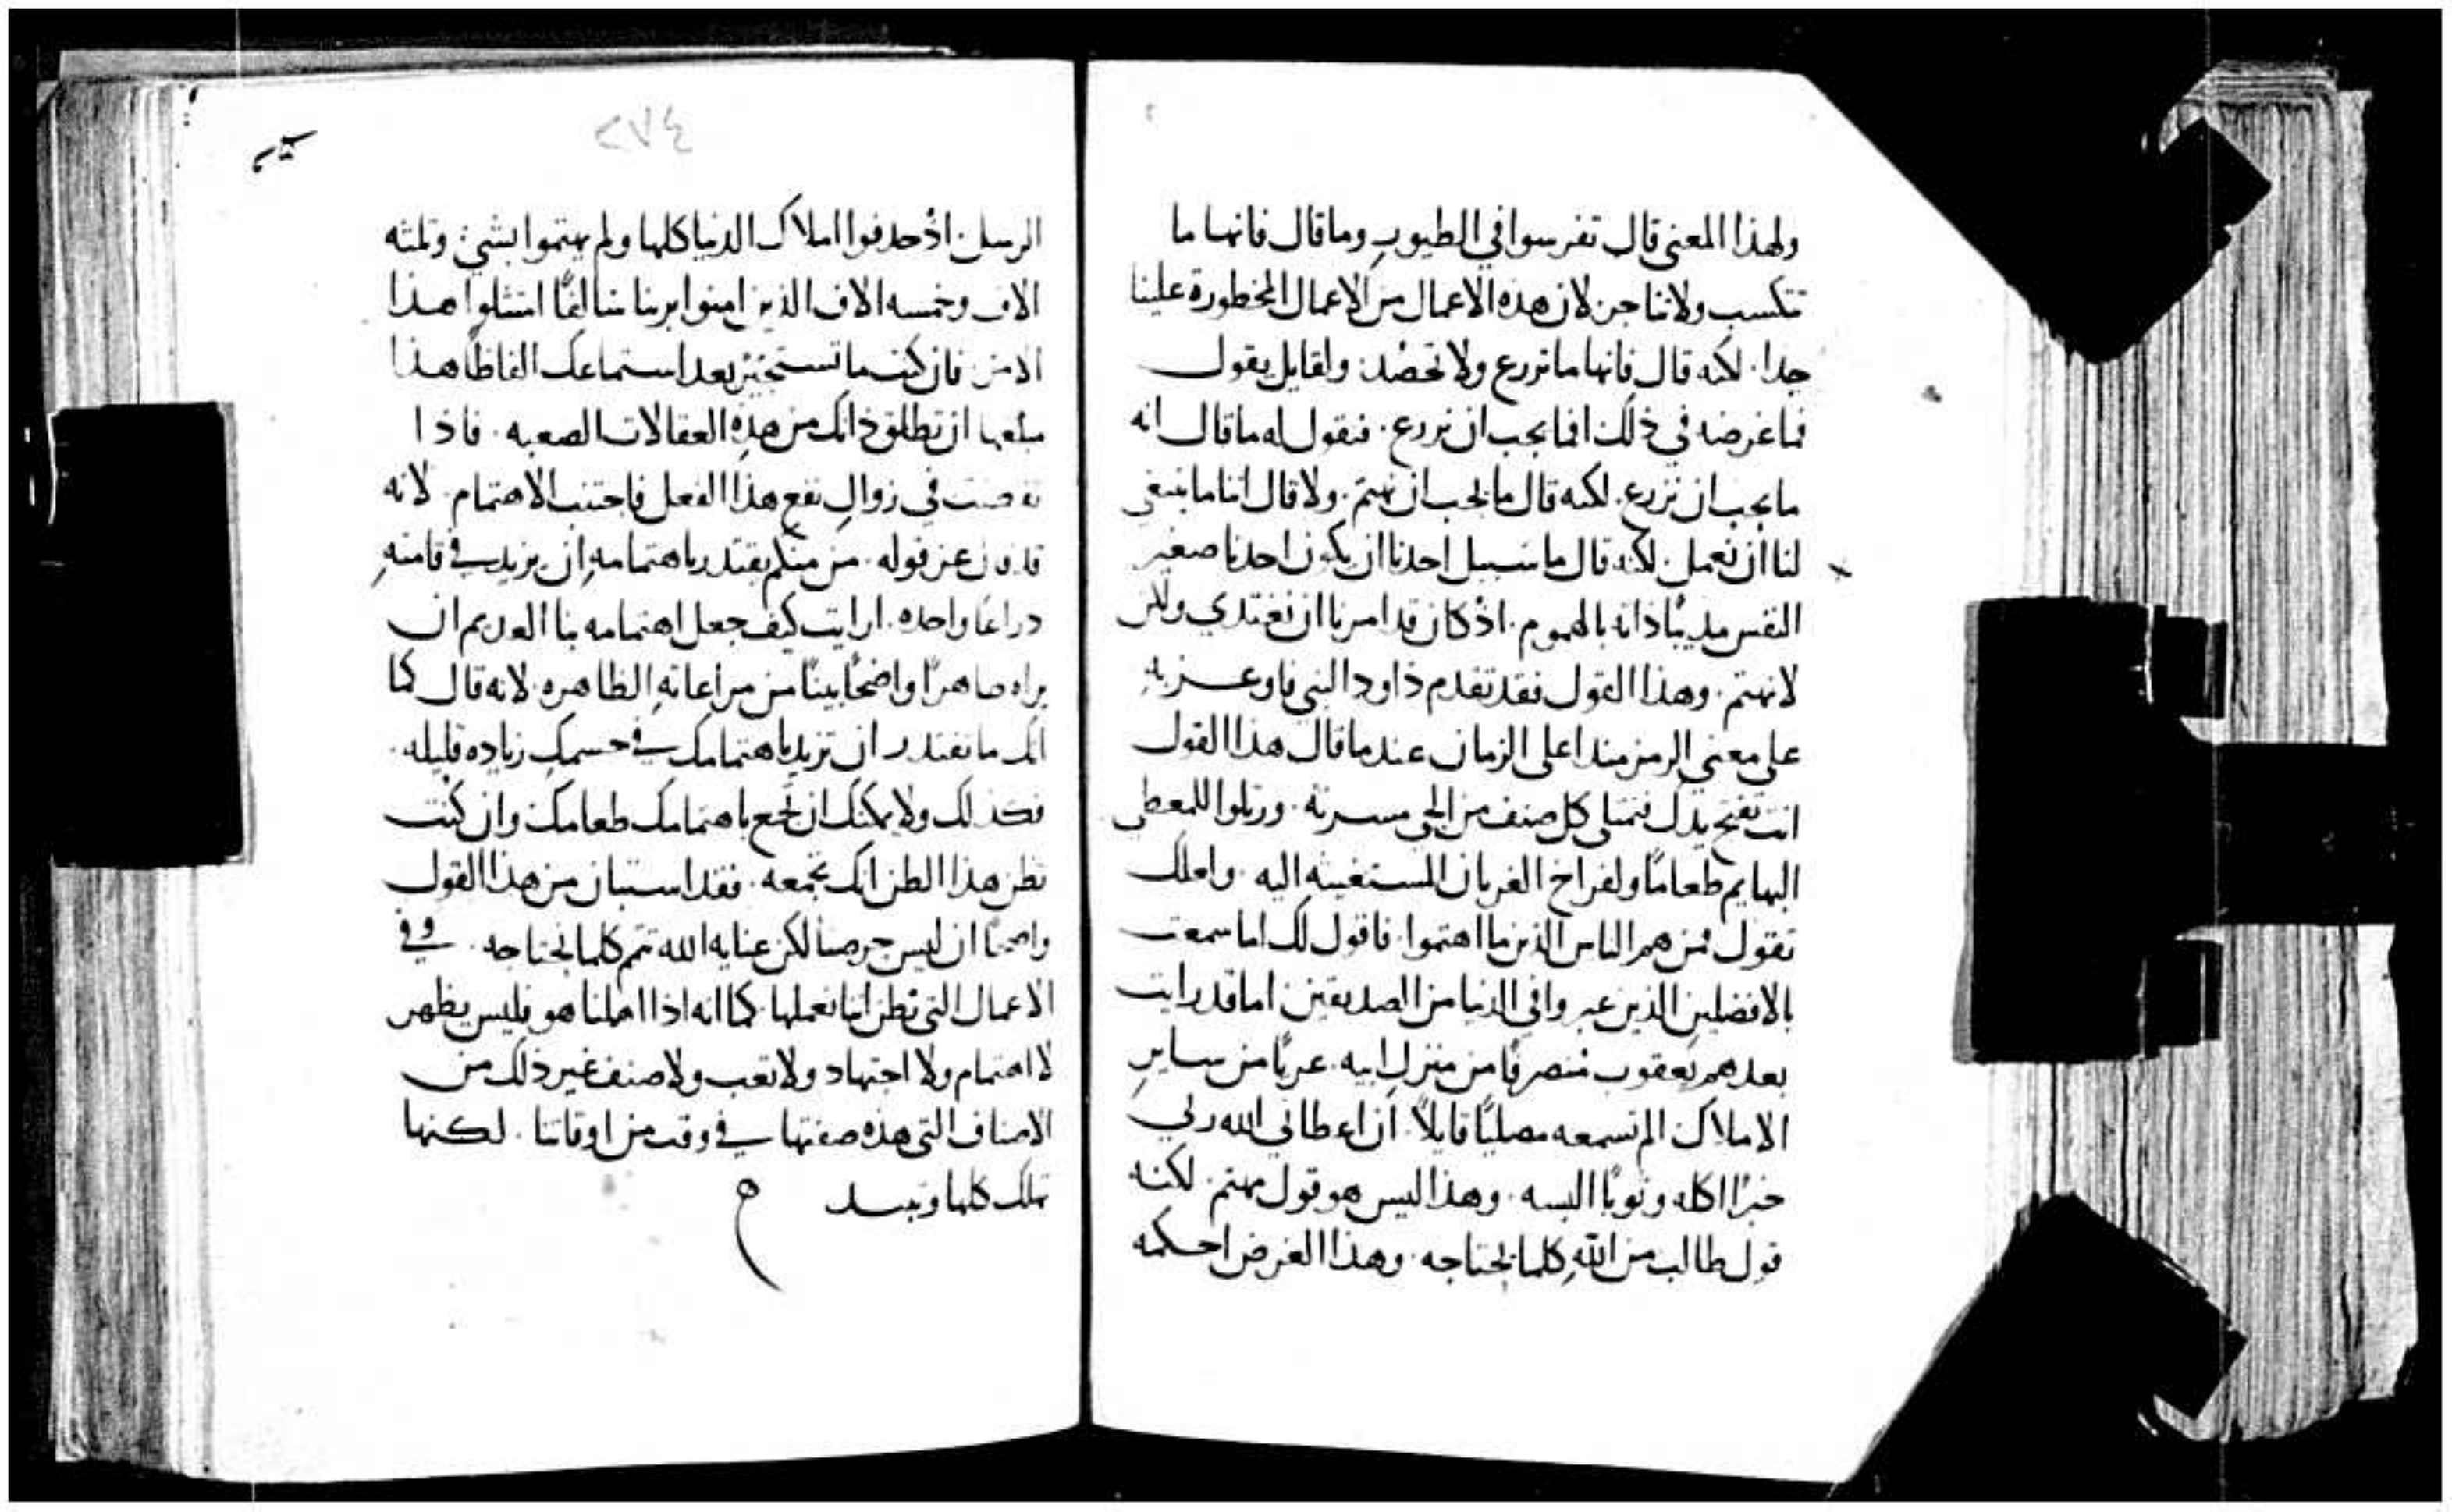 ولهذا المعنى قال تفرسوا في الطيور وما قال فانها ما
تكتسب ولا تتاجر لان هذه الاعمال من الاعمال المحظورة علينا
جدا. لكنه قال فانها ما تزرع ولا تحصد: ولقايل يقول
فما غرضه في ذلك افما يجب ان نزرع. فنقول له ما قال انه
ما يجب ان نزرع. لكنه قال ما يجب ان نهتم. ولا قال اننا ما ينبغي
لنا ان نعمل. لكنه قال ما سبيل احدنا ان يكون احدنا صغير
النفس مذيبًا ذاته بالهموم. اذ كان قد امرنا ان نغتدي ولكن
لا نهتم. وهذا القول فقد تقدم داود النبي فاوعز به
على معنى الرمز منذ اعلى الزمان عند ما قال هذا القول
انت تفتح يدك فتمتلي كل صنف من الحي مسرته. ورتلوا للمعطي
البهايم طعامًا ولفراخ الغربان المستغيثه اليه. ولعلك
تقول فمن هم الناس الذين ما اهتموا. فاقول لك اما سمعت
بالافضلين الذين عبروا في الدنيا من الصديقين اما قد رايت
بعدهم يعقوب منصرفًا من منزل ابيه. عريًا من ساير
الاملاك الم تسمعه مصليًا قايلاً. ان اعطاني الله ربي
خبزًا اكله وثوبًا البسه. وهذا ليس هو قول مهتم. لكنه
قول طالب من الله كلما يحتاجه. وهذا الغرض احكمه
٤٧٥
الرسل. اذ حدفوا املاك الدنيا كلها ولم يهتموا بشيٍ وثلثه
الاف وخمسه الاف الذين امنوا بربنا امتثلوا هذا
الامر. فان كنت ما تستجيز بعد استماعك الفاظًا هذا
مبلغها ان تطلق ذاتك من هذه العقالات الصعبه. فاذا
تفرست في زوال نفع هذا الفعل فاجتنب الاهتمام. لانه
قد قال عز قوله. من منكم يقتدر باهتمامه ان يزيد في قامته
دراعًا واحده. ارايت كيف جعل اهتمامه بنا
من مراعاته الظاهره. لانه قال كما
انك ما تقتدر ان تزيد باهتمامك في جسمك زياده قليله.
فكذلك ولا يمكنك ان تجمع باهتمامك طعامك وان كنت
تظن هذا الظن انك تجمعه. فقد استبان من هذا القول
واضحًا ان ليس حرصنا لكن عنايه الله تتم كلما نحتاجه. وفي
الاعمال التي نظن اننا نعملها. كما انه اذا اهملنا هو فليس يظهر
لا اهتمام ولا اجتهاد ولا تعب ولا صنف غير ذلك من
الاصناف التي هذه صفتها في وقت من اوقاتنا. لكنها
تهلك كلها وتبيد